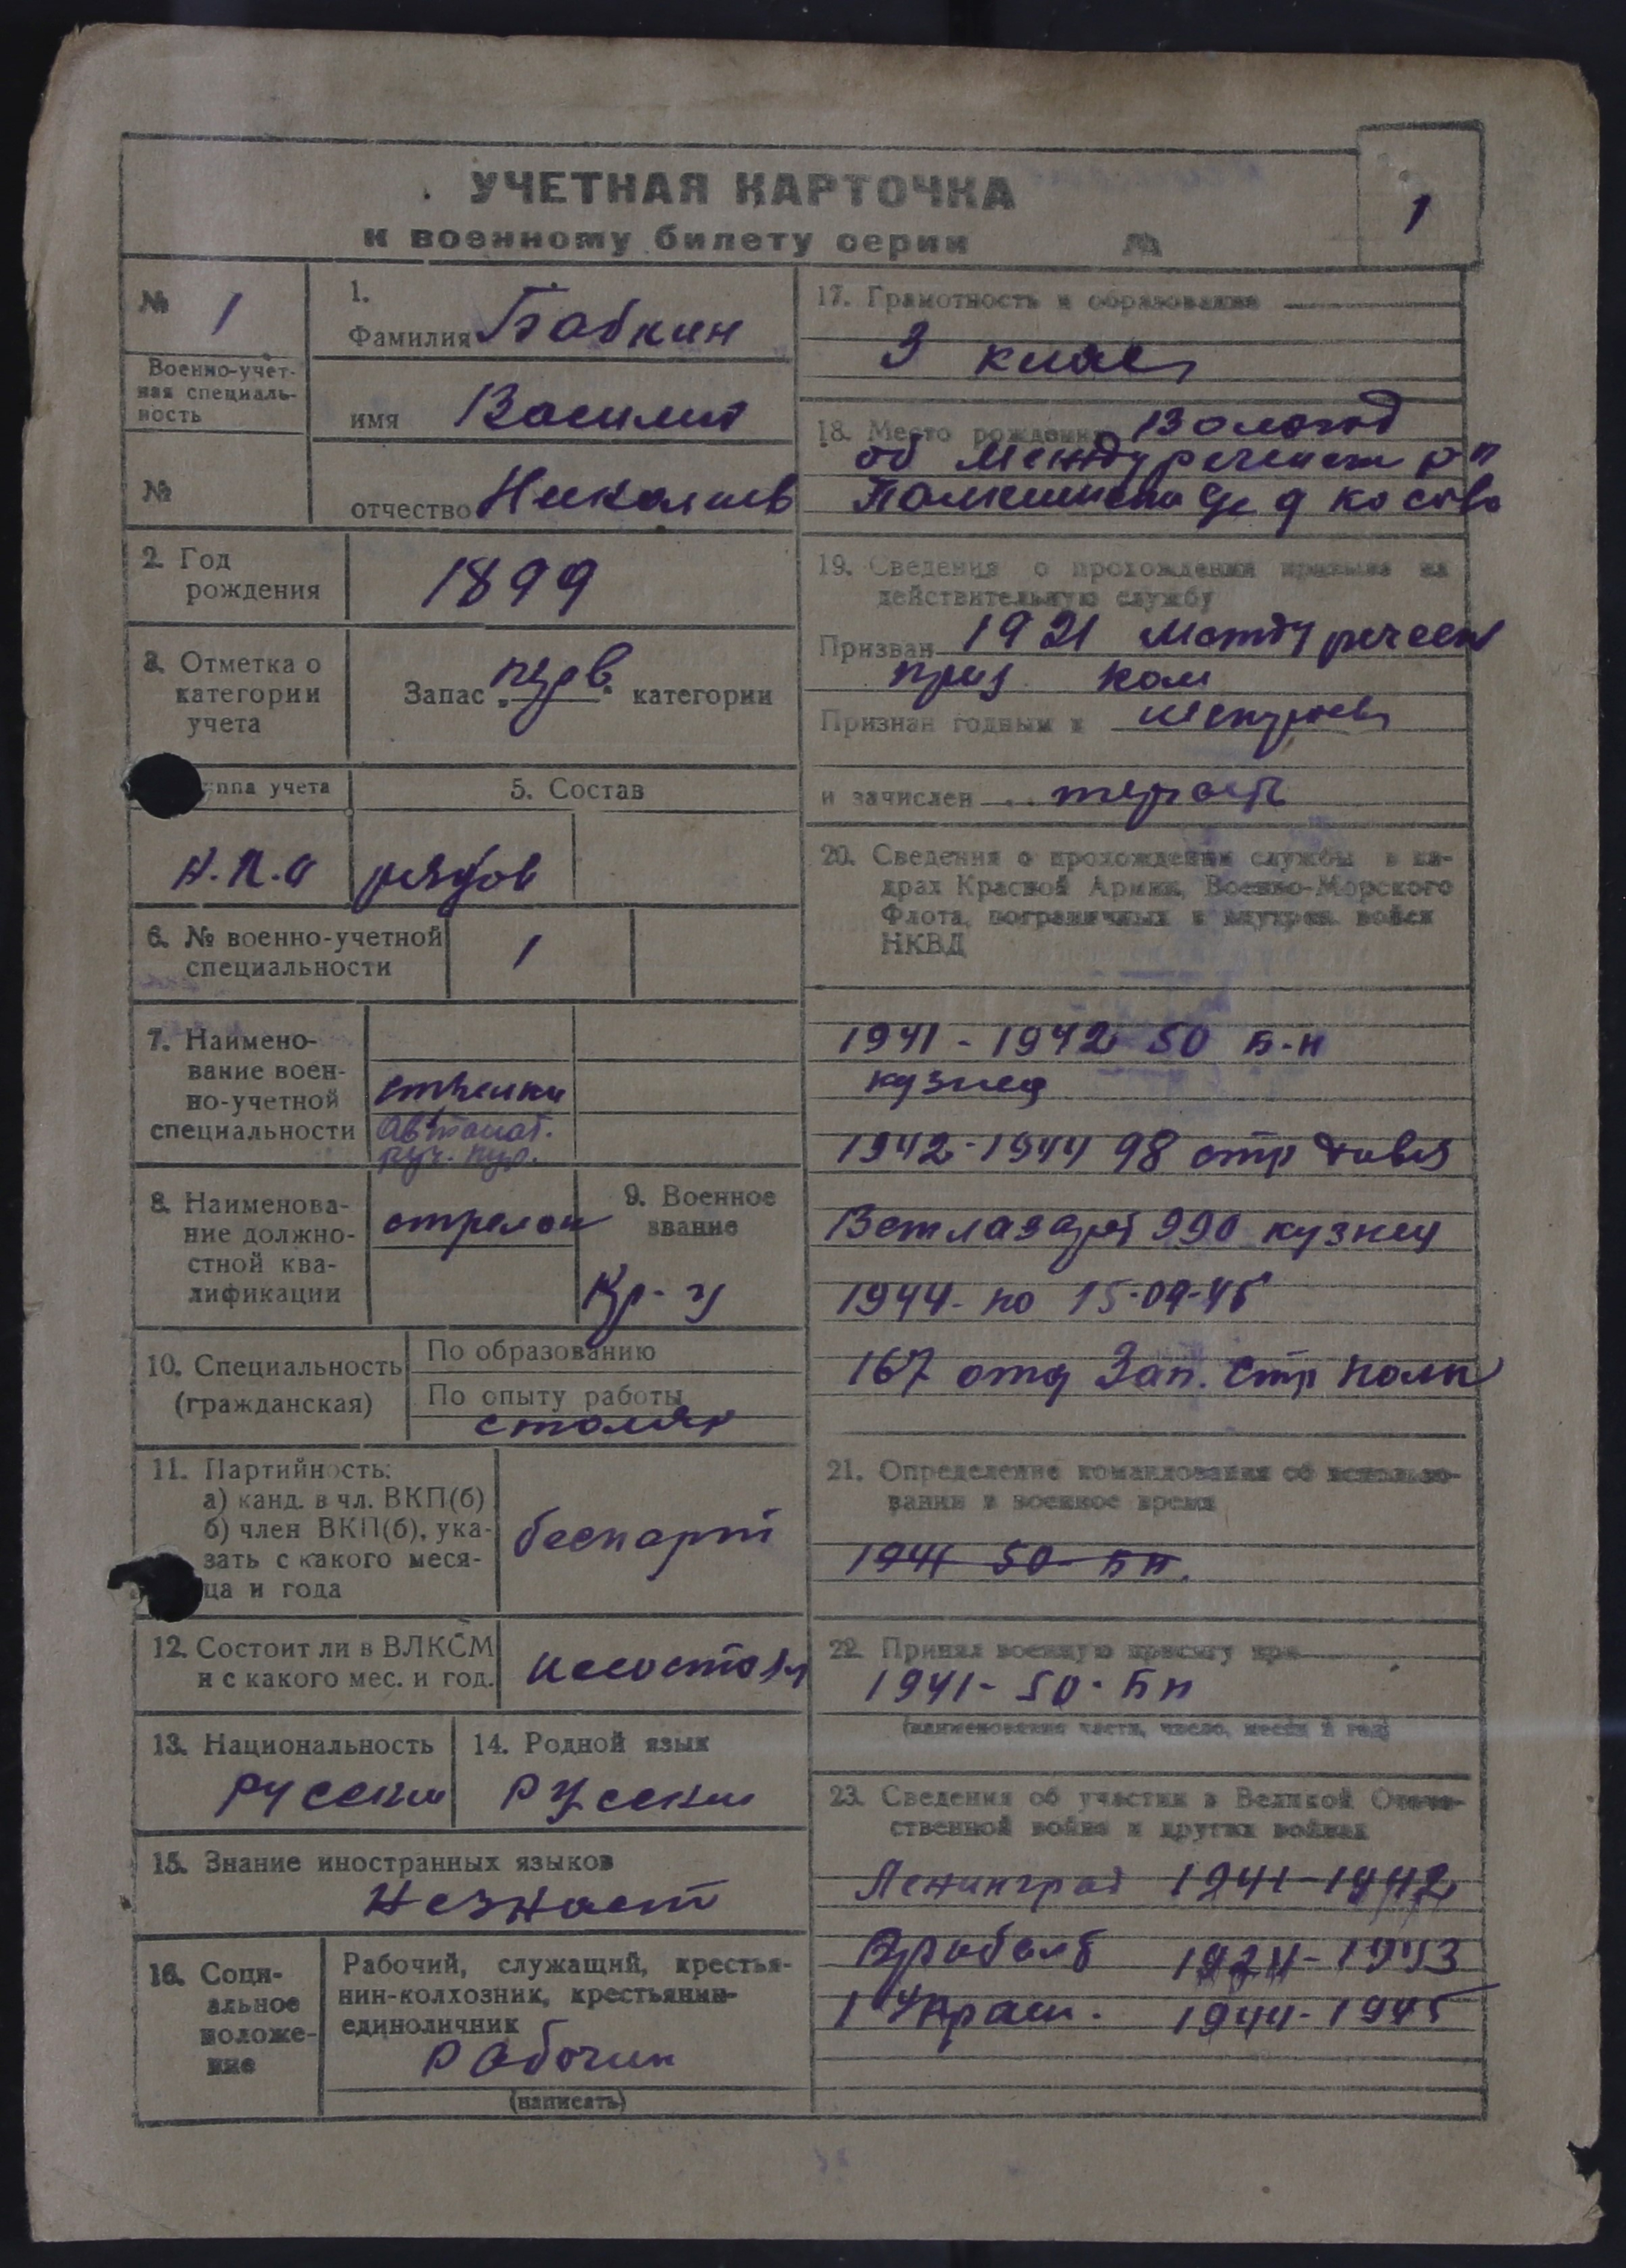 УЧЕТНАЯ КАРТОЧКА
к военному билету серии №
1
№ 1
Военно-учет-
ная специаль-
ность
№
1.
Фамилия Бабкин
имя Василий
отчество Николаев
2. Год
рождения
1899
3. Отметка о
категории
учета
Запас перв. категории
ппа учета
5. Состав
рядов
6. № военно-учетной
специальности
1
7. Наимено-
вание воен-
но-учетной
специальности
стрелки
Автомат.
руч. пул.
8. Наименова-
ние должно-
стной ква-
лификации
стрелок
9. Военное
звание
Кр-ц
10. Специальность
(гражданская)
По образованию
По опыту работы
столяр
11. Партийность:
а) канд. в чл. ВКП(б)
б) член ВКП(б), ука-
зать с какого меся-
ца и года
беспарт
12. Состоит ли в ВЛКСМ
и с какого мес. и год.
несостоял
13. Национальность
русский
14. Родной язык
русский
15. Знание иностранных языков
незнает
16. Соци-
альное
положе-
ние
Рабочий, служащий, крестья-
нин-колхозник, крестьянин-
единоличник
Рабочий
(написать)
17. Грамотность и образование
3 класс
18. Место рождения Вологод
об Междуреченск р-н
д косово
19. Сведения о прохождении призыва на
действительную службу
Призван 1921 Междуречен
приз ком
Признан годным к
и зачислен
20. Сведения о прохождении службы в ка-
драх Красной Армии, Военно-Морского
Флота, пограничных и внутрен. войск
НКВД
1941 - 1942 50 Б-н
кузнец
1942-1944 98 стр
990 кузнец
1944- по 15-09-45
167 отд Зап. Стр полк
21. Определение командования об использо-
вании в военное время
1941 50 Бн.
22. Принял военную присягу при
1941- 50. Бн
(наименование части, число, месяц и год)
23. Сведения об участии в Великой Отече-
ственной войне и других войнах
Ленинград 1941-1942
1943
1 Украин. 1944-1945